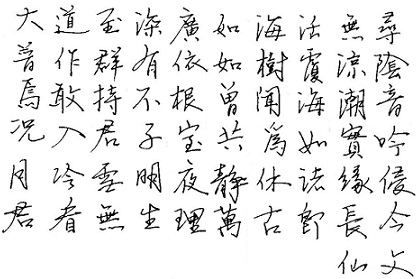 尋陰音吟侵今文
無涼潮實緣長仙
活覆海如諸郎
海樹聞為休古
如如曾共靜萬
廣依根宝夜理
深有不子明生
至群持君雲無
道作敢入冷者
大普焉況月君